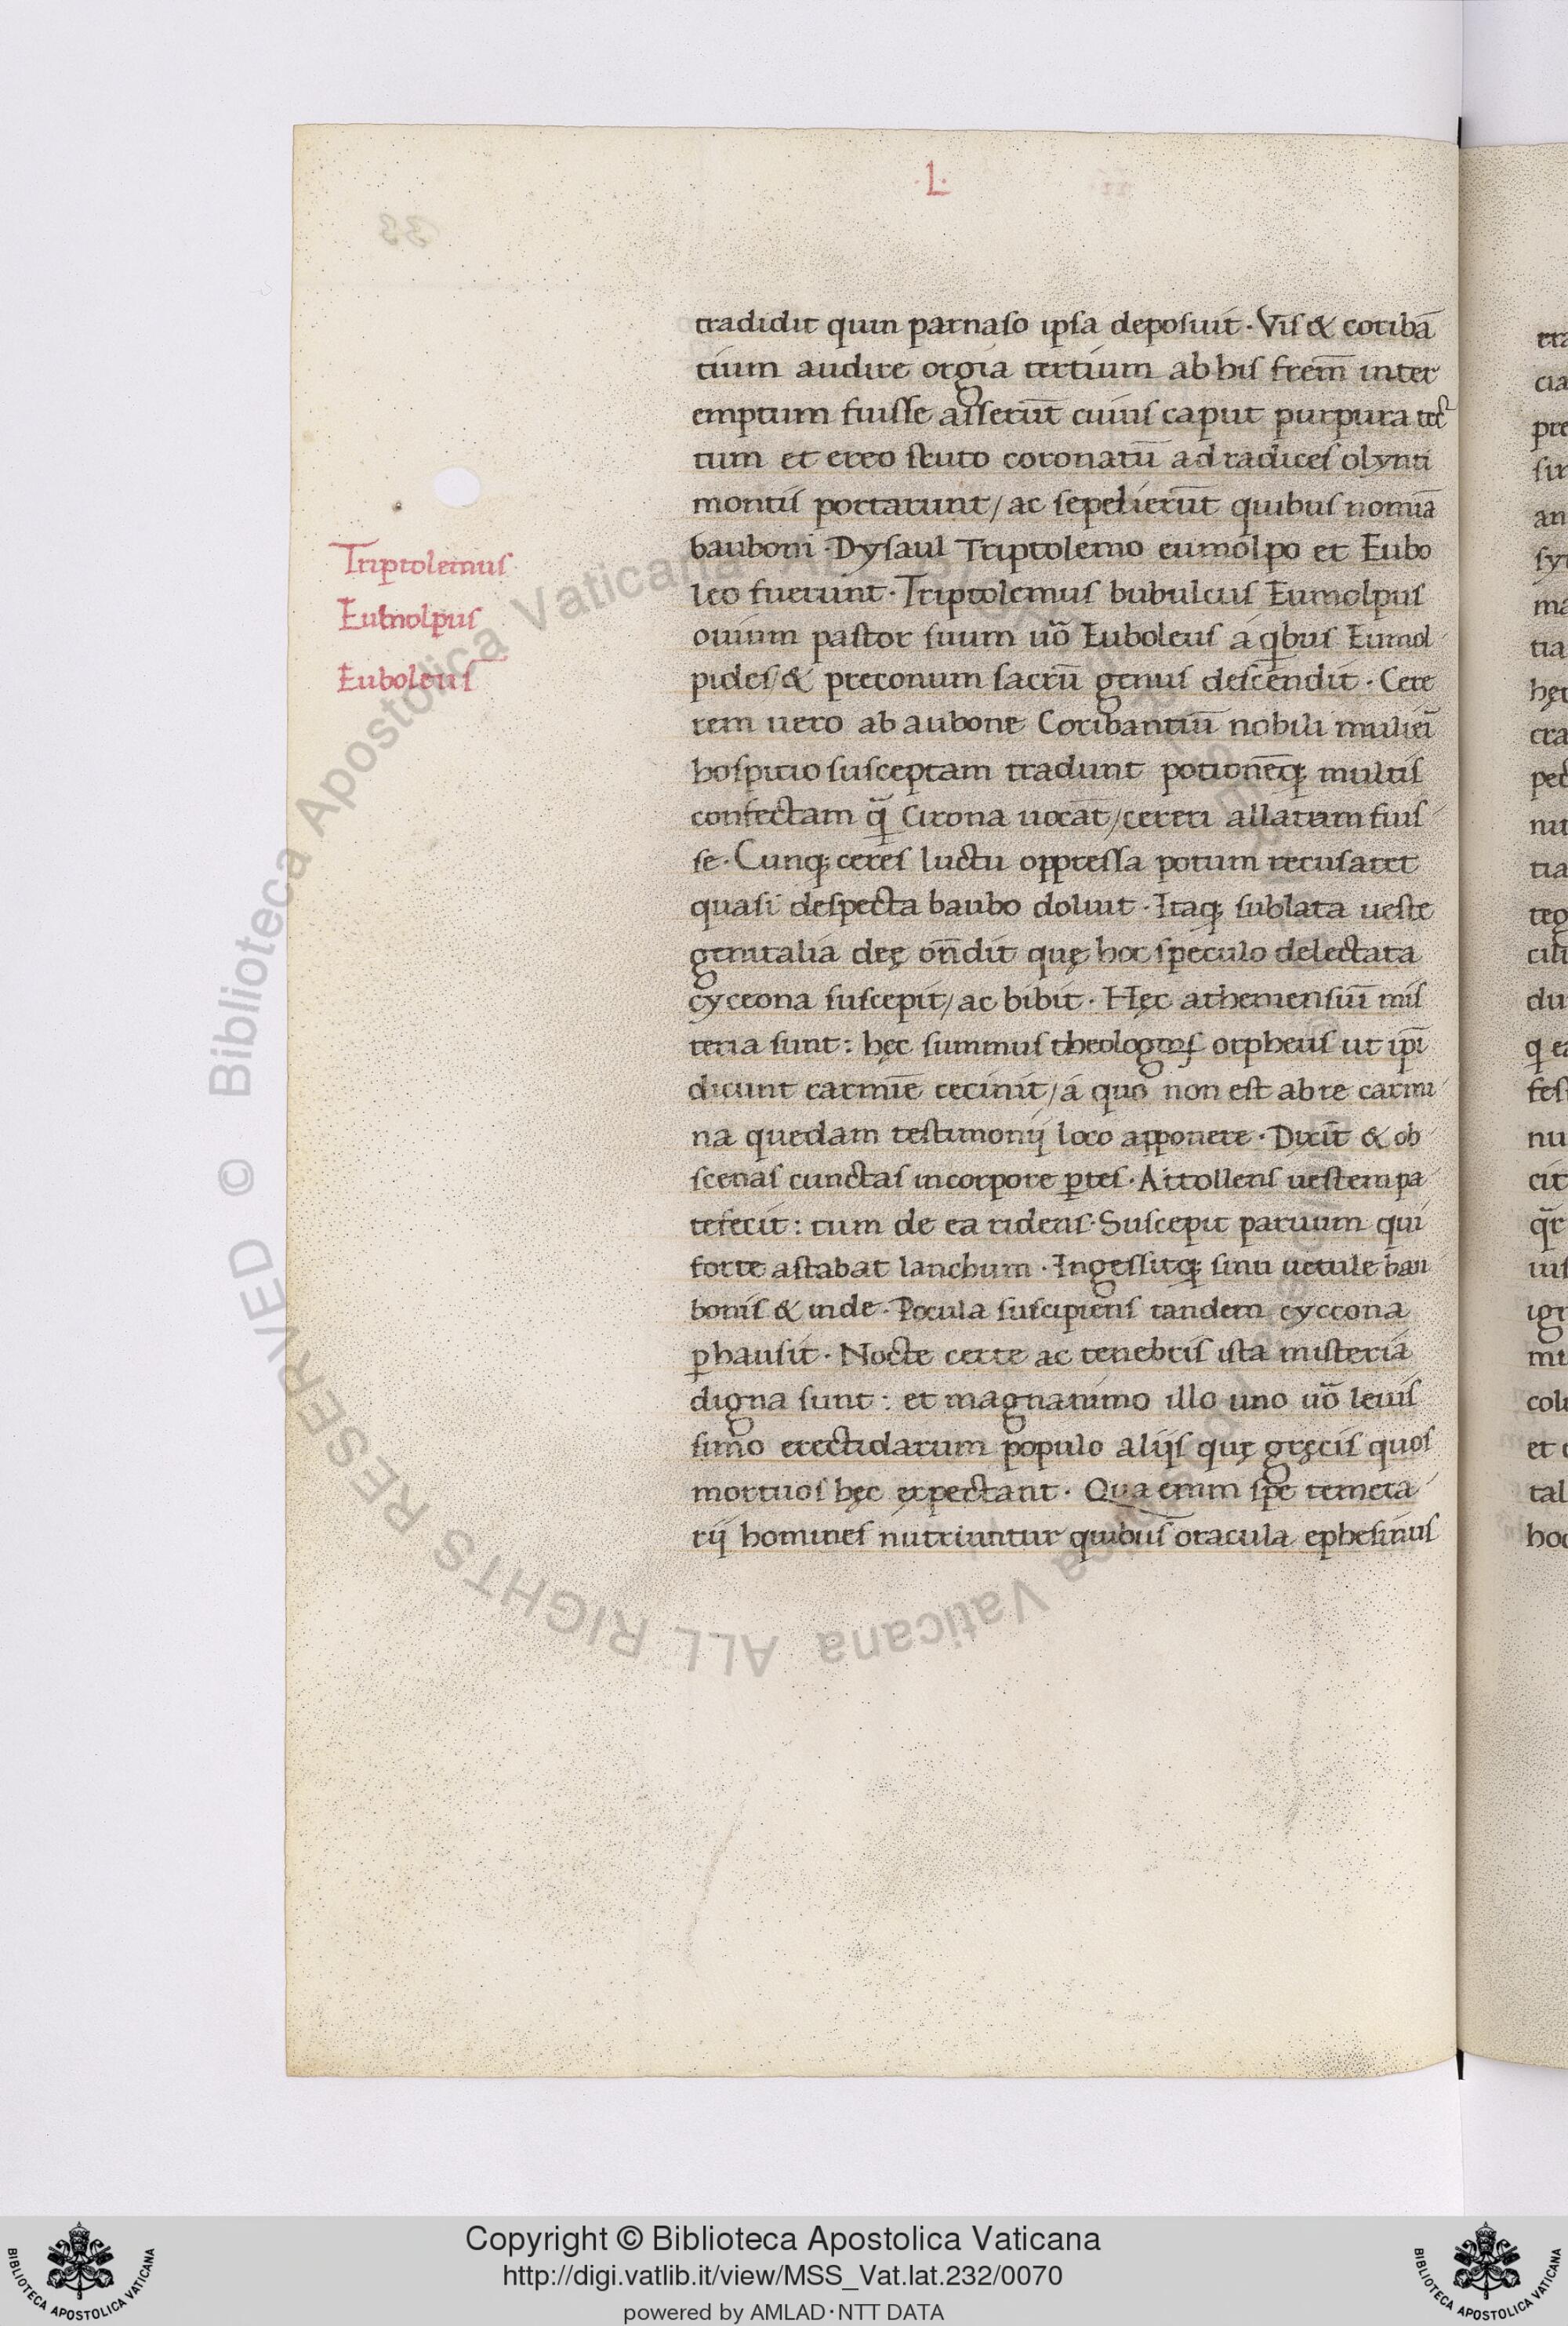 ·L·
tradidit quin parnaso ipsa deposuit · Vis & coribā
tium audire orgia tertium ab his frem̄ inter
emptum fuisse asserūt cuius caput purpura tec
tum et ereo scuto coronatū ad radices olynti
montis portarunt / ac sepelierūt quibus nomīa
bauboni · Dysaul Triptolemo eumolpo et Eubo
leo fuerunt · Triptolemus bubulcus Eumolpus
ouium pastor suum uō Euboleus á qbus Eumol
pides / & preconum sacrū genus descendit · Cere
rem uero ab aubone Coribantiū nobili mulieī
hospitio susceptam tradunt potionēq; multis
confectam q̄ Cirona uocāt / cereri allatum fuis
se · Cunq; ceres luctu oppressa potum recusaret
quasi despecta baubo doluit · Itaq; sublata ueste
genitalia deę on̄dit quę hoc speculo delectata
cyceona suscepit / ac bibit · Hęc atheniensiū mis
teria sunt : hęc summus theologus orpheus ut ip̄i
dicunt carmīe cecinit / á quo non est ab re carmi
na quedam testimonij loco apponere · Dixit & ob
scenas cunctas in corpore ptes · Attollens uestem pa
tefecit : tum de ea ridens · Suscepit paruum qui
forte astabat Ianchum · Ingessitq; sinu uetule bau
bonis & inde · Pocula suscipiens tandem cyceona
phausit · Nocte certe ac tenebris ista misteria
digna sunt : et magnanimo illo uno uō leuis
simo erectidarum populo alijs quę gręcis quos
mortuos hęc expectant · Qua enim spe temera
rij homines nutriuntur quibus oracula ephesinus
Triptolemus
Eumolpus
Euboleus
© Biblioteca Apostolica Vaticana ALL RIGHTS RESERVED
Copyright © Biblioteca Apostolica Vaticana
http://digi.vatlib.it/view/MSS_Vat.lat.232/0070
powered by AMLAD·NTT DATA
BIBLIOTECA APOSTOLICA VATICANA
BIBLIOTECA APOSTOLICA VATICANA